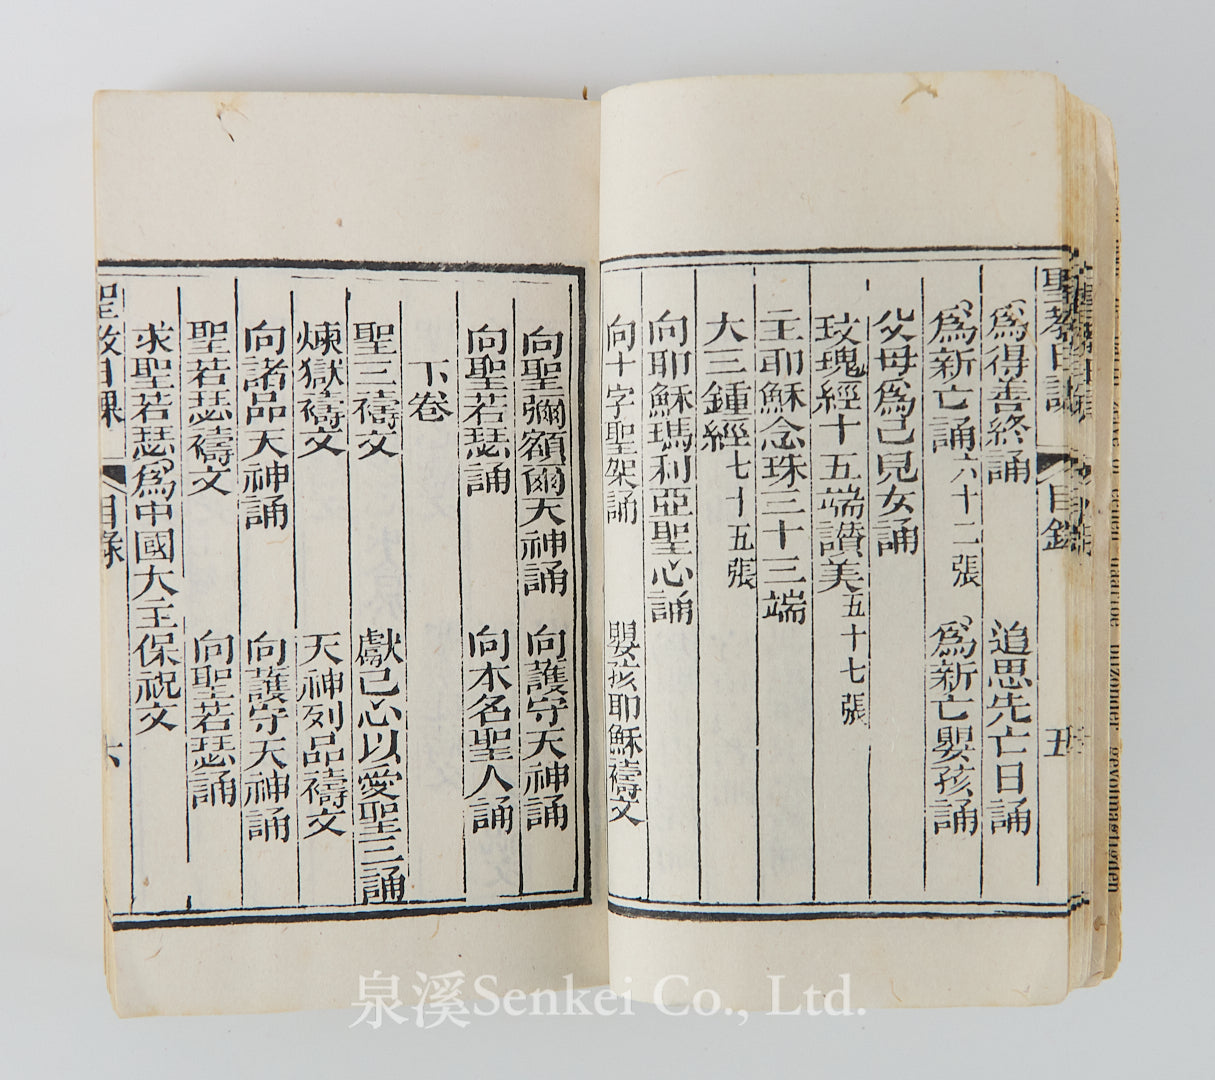 聖教日課 目錄 五
為得善終誦 追思先亡日誦
為新亡誦六十二張 為新亡嬰孩誦
父母為己兒女誦
玫瑰經十五端讚美五十七張
主耶穌念珠三十三端
大三鍾經七十五張
向耶穌瑪利亞聖心誦
向十字聖架誦 嬰孩耶穌禱文
向聖彌額爾天神誦 向護守天神誦
向聖若瑟誦 向本名聖人誦
下卷
聖三禱文 獻己心以愛聖三誦
煉獄禱文 天神列品禱文
向諸品天神誦 向護守天神誦
聖若瑟禱文 向聖若瑟誦
求聖若瑟為中國大主保祝文
聖教日課 目錄 六
泉溪Senkei Co., Ltd.